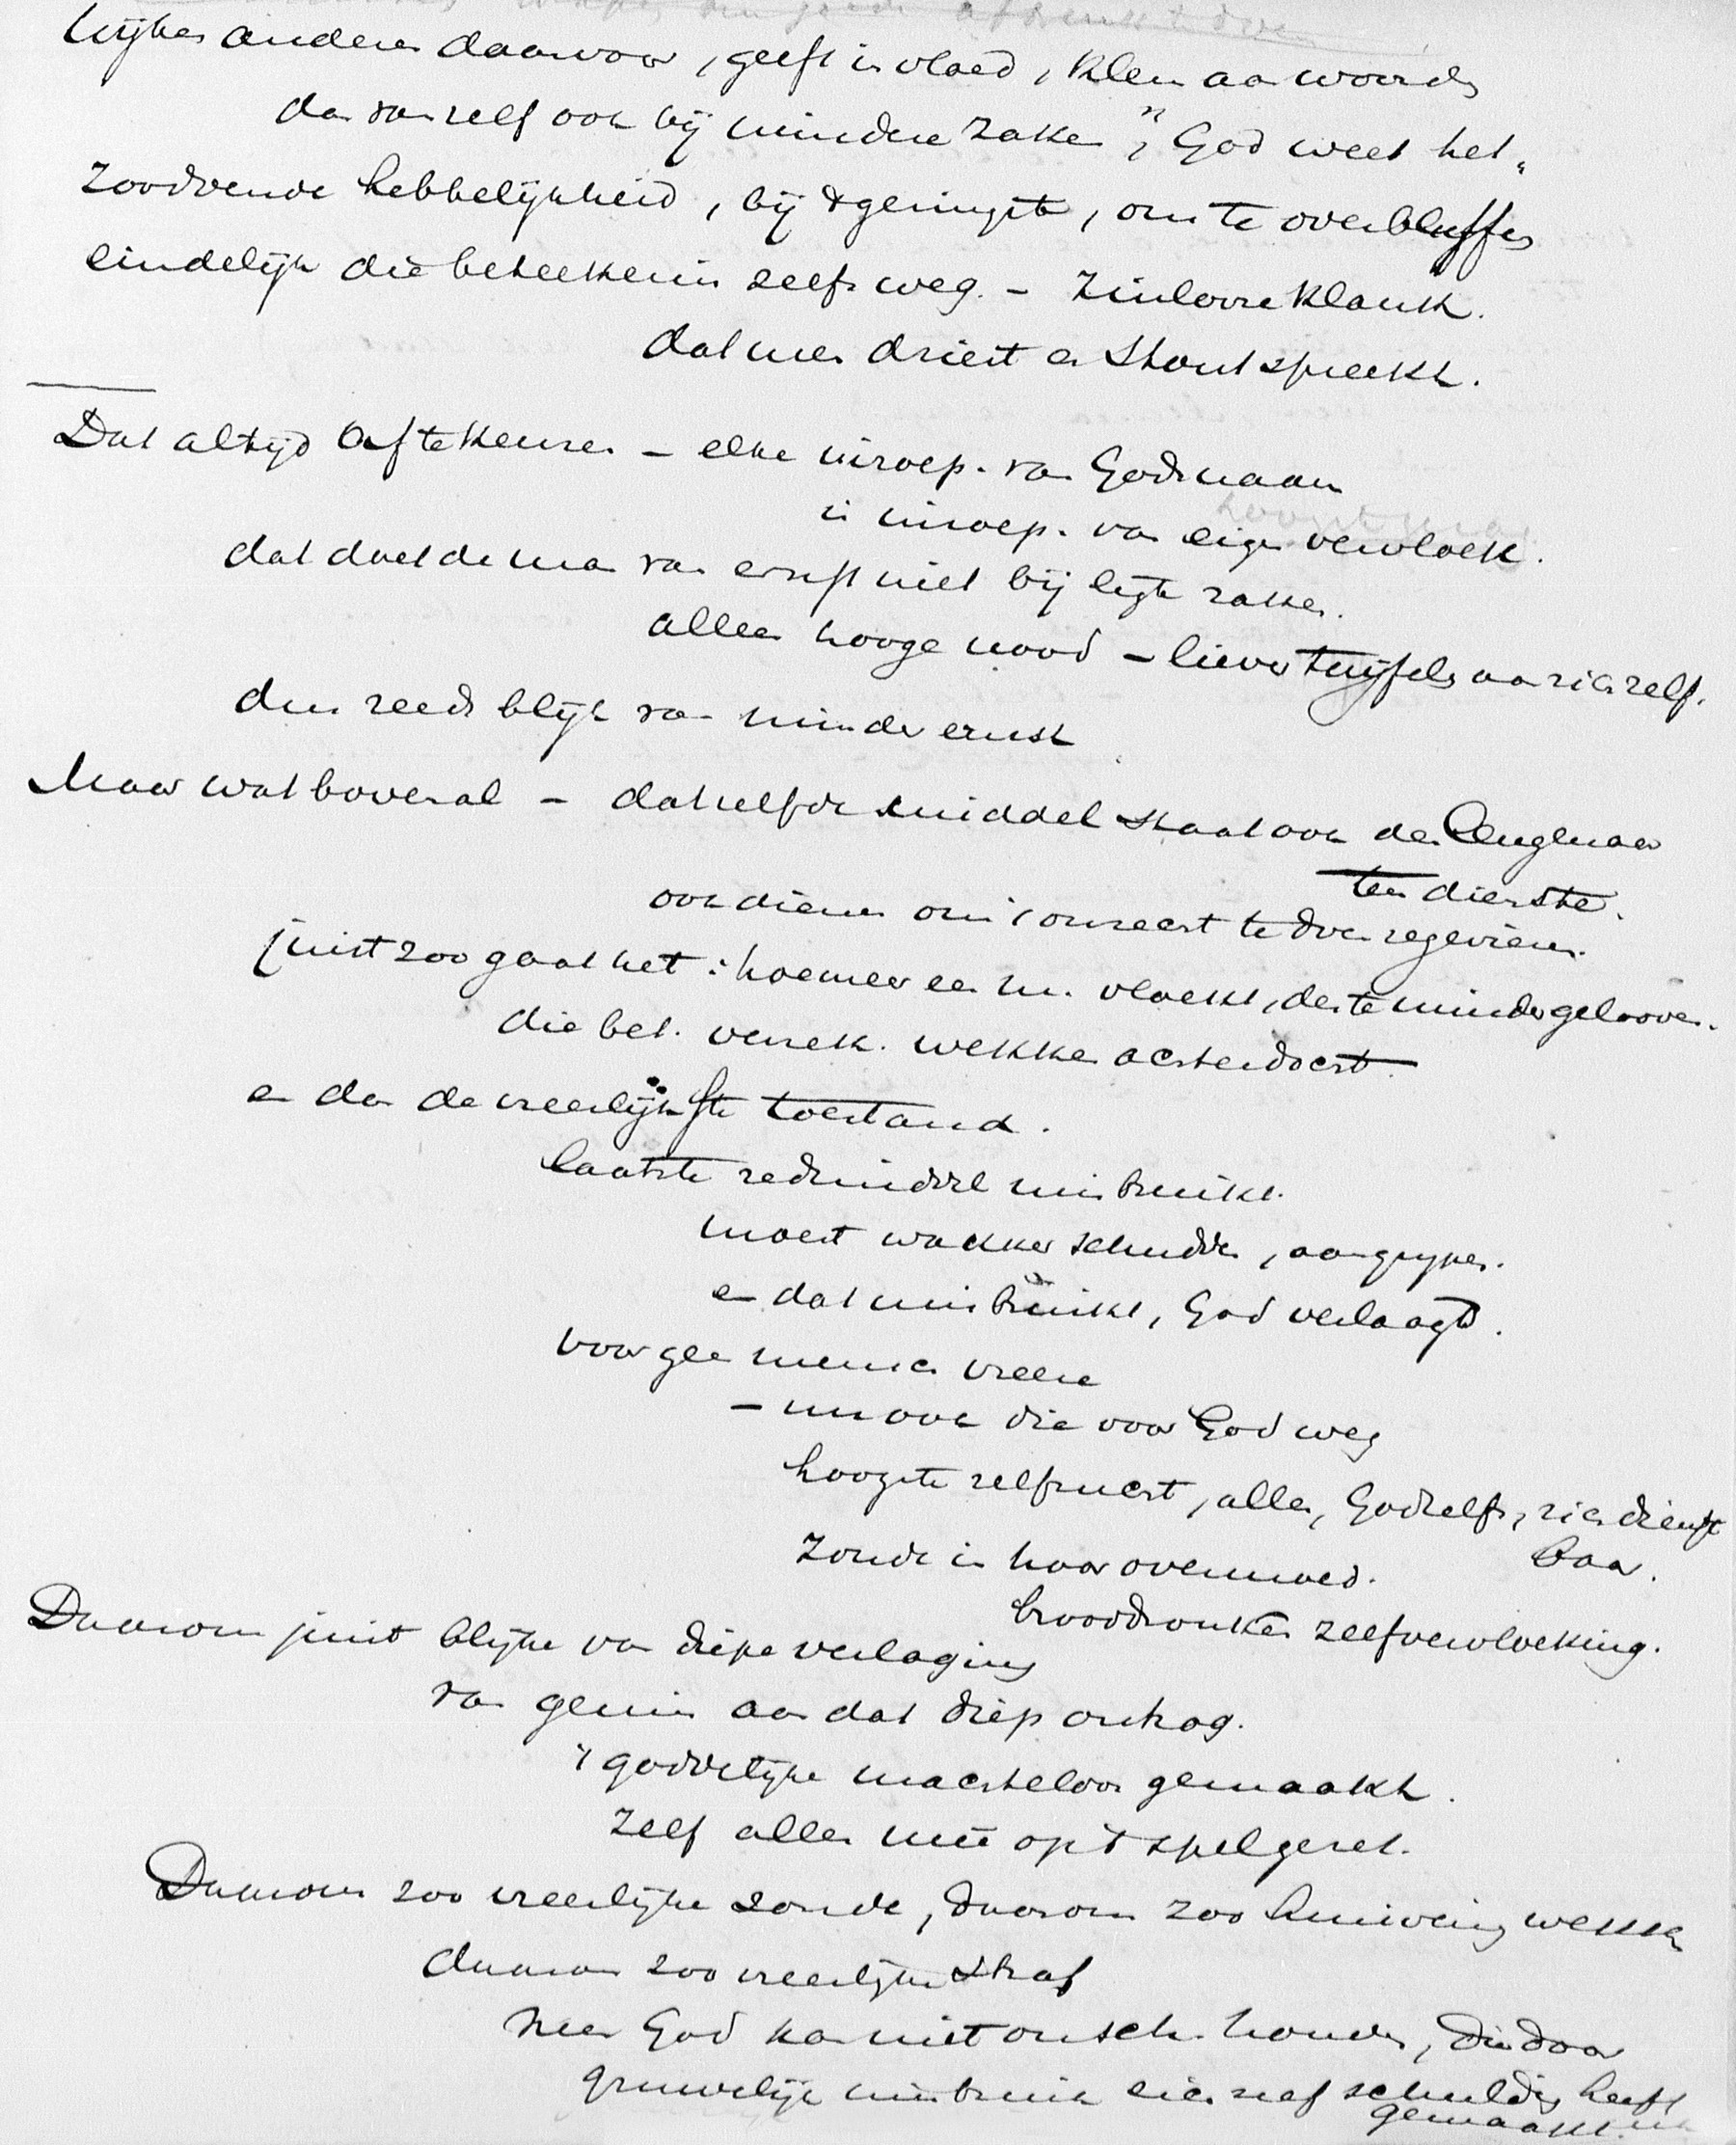 wijken anderen daarvoor, geeft invloed, klem aan woorden
dan vanzelf ook bij mindere zaken, "God weet het"
zoodoende hebbelijkheid, bij 't geringste, om te overbluffen
eindelijk die beteekenis zelfs weg. - Zinlooze klank.
dat men driest en stout spreekt.
Dat altijd af te keuren - elke inroep. van Godsnaam
is inroep. van eigen vervloek.
dat doet de man van ernst niet bij ligte zaken.
alleen hooge nood - liever twijfelen aan zich zelf.
dus reeds blijk van minder ernst
Maar wat bovenal - datzelfde middel staat ook den leugenaar
ten dienste.
ook dienen om 't onrecht te doen zegevieren.
juist zoo gaat het: hoe meer een m. vloekt, des te minder gelooven.
die bet. verzek. wekken achterdocht.
en dan de vreeselijkste toestand.
laatste redmiddel misbruikt.
moest wakker schudden, aangrijpen.
en dat misbruikt, God verlaagd.
voor geen mensch vreeze
- nu ook die voor God weg
hoogste zelfzucht, alles, God zelfs, zich dienst
baar.
Zonde in haar overmoed.
brooddronken zelfvervloeking.
Daarom juist blijk van diepe verlaging
van gemis aan dat diep ontzag.
't goddelijke machteloos gemaakt.
Zelf alles mee op 't spel gezet.
Daarom zoo vreeselijke zonde, daarom zoo huivering wekk
daarom zoo vreeselijke straf
Neen God kan niet onsch. houden, die door
gruwelijk misbruik zich zelf schuldig heeft
gemaakt.